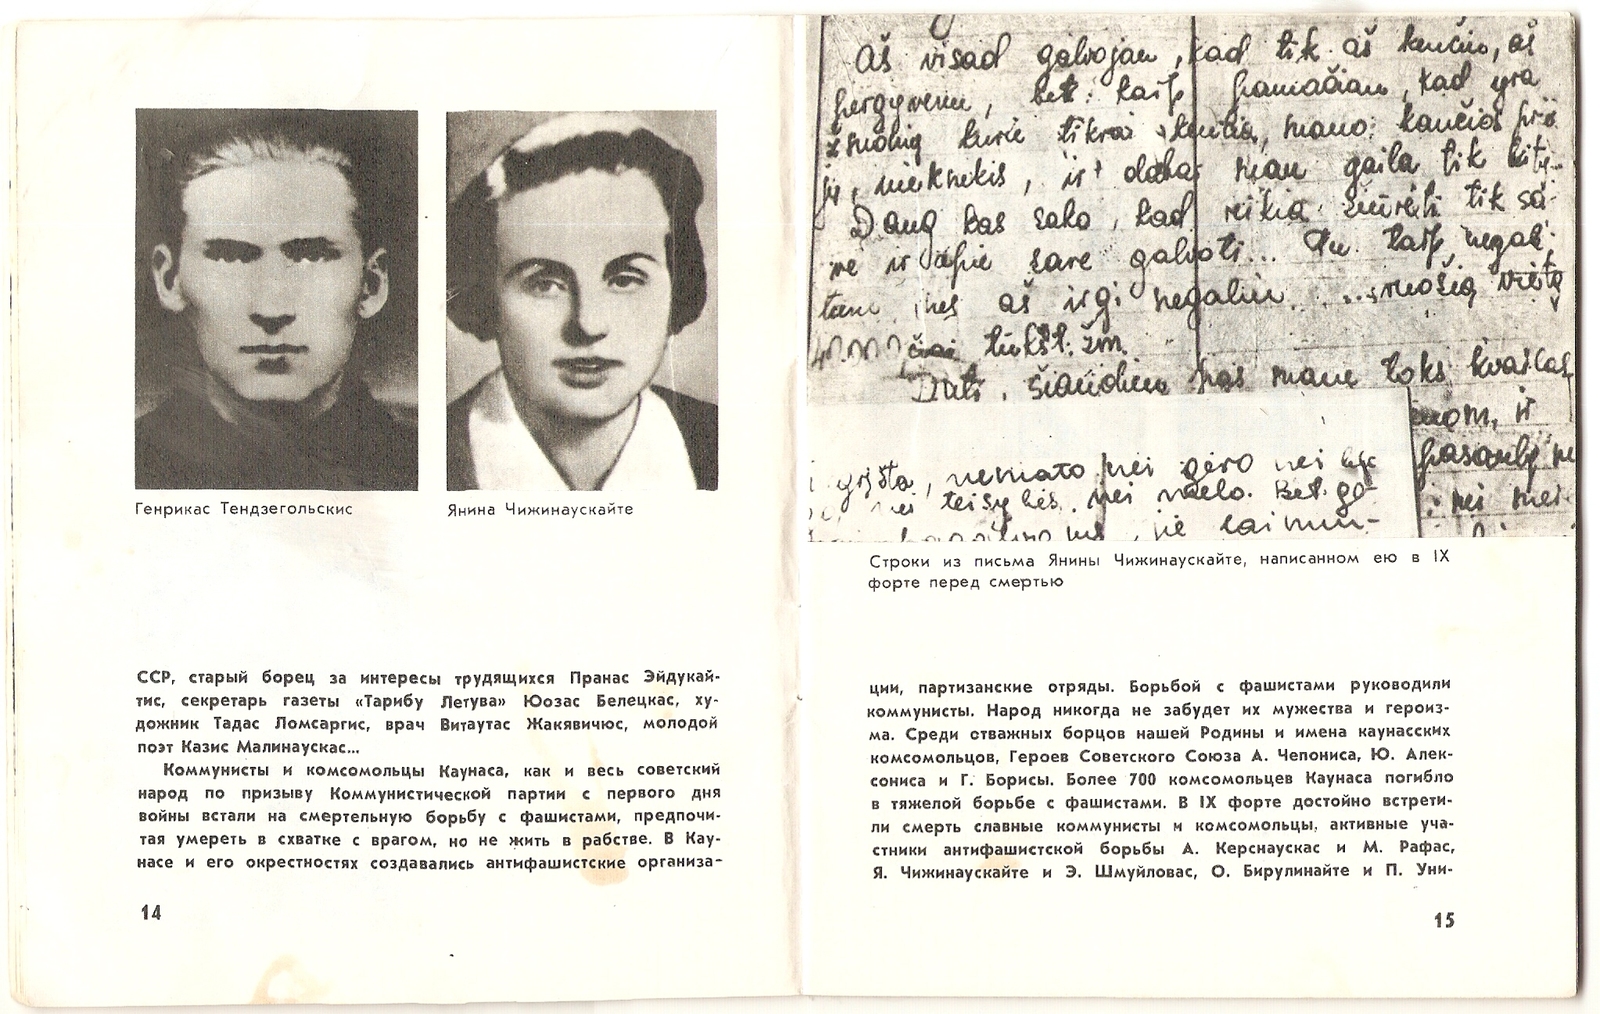 Генрикас Тендзегольскис
Янина Чижинаускайте
ССР, старый борец за интересы трудящихся Пранас Эйдукай-
тис, секретарь газеты «Тарибу Летува» Юозас Белецкас, ху-
дожник Тадас Ломсаргис, врач Витаутас Жакявичюс, молодой
поэт Казис Малинаускас...
Коммунисты и комсомольцы Каунаса, как и весь советский
народ по призыву Коммунистической партии с первого дня
войны встали на смертельную борьбу с фашистами, предпочи-
тая умереть в схватке с врагом, но не жить в рабстве. В Кау-
насе и его окрестностях создавались антифашистские организа-
14
Aš visad galvojau, kad tik aš kenčiu, aš
pergyvenu, bet kaip pamačiau, kad yra
žmonių kurie tikrai kenčia, mano kančios prie
jų, niekniekis, ir dabar man gaila tik kitų.
Daug kas sako, kad reikia žiūrėti tik sa-
vę ir apie save galvoti... Tu taip negali
tum nes aš irgi negaliu ... vietą
tukst. žm.
šiandien pas mane toks kvailas
ir
grįšta, nemato nei gero nei
nei teisybės, nei melo. Bet ge-
nei mei-
Строки из письма Янины Чижинаускайте, написанном ею в IX
форте перед смертью
ции, партизанские отряды. Борьбой с фашистами руководили
коммунисты. Народ никогда не забудет их мужества и героиз-
ма. Среди отважных борцов нашей Родины и имена каунасских
комсомольцев, Героев Советского Союза А. Чепониса, Ю. Алек-
сониса и Г. Борисы. Более 700 комсомольцев Каунаса погибло
в тяжелой борьбе с фашистами. В IX форте достойно встрети-
ли смерть славные коммунисты и комсомольцы, активные уча-
стники антифашистской борьбы А. Керснаускас и М. Рафас,
Я. Чижинаускайте и Э. Шмуйловас, О. Бирулинайте и П. Уни-
15